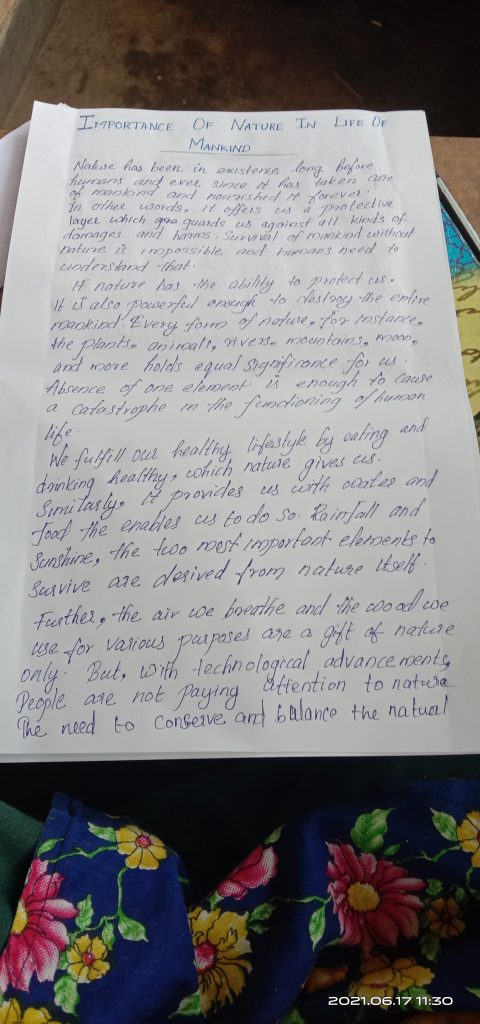 IMPORTANCE OF NATURE IN LIFE OF
MANKIND
Nature has been in existence long before
humans and ever since it has taken care
of mankind and nourished it forever.
In other words, it offers us a protective
layer which guards us against all kinds of
damages and harms. Survival of mankind without
nature is impossible and humans need to
understand that.
If nature has the ability to protect us.
It is also powerful enough to destroy the entire
mankind. Every form of nature, for instance,
the plants, animals, rivers, mountains, moon,
and more holds equal significance for us.
Absence of one element is enough to cause
a catastrophe in the functioning of human
life.
We fulfill our healthy lifestyle by eating and
drinking healthy, which nature gives us.
Similarly, it provides us with water and
food the enables us to do so. Rainfall and
Sunshine, the two most important elements to
Survive are derived from nature itself.
Further, the air we breathe and the wood we
use for various purposes are a gift of nature
only. But, with technological advancements,
People are not paying attention to nature
The need to conserve and balance the natual
2021.06.17 11:30